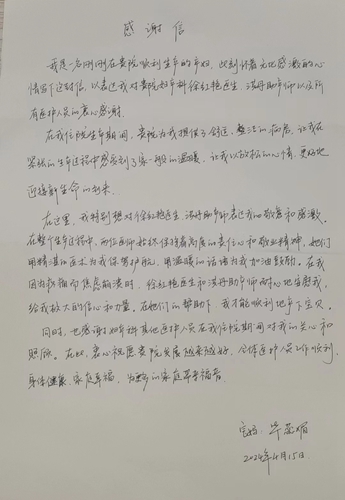 感谢信
我是一名刚刚在贵院顺利生产的产妇，此刻怀着无比感激的心
情写下这封信，以表达我对贵院妇产科徐红艳医生、洪丹助产师以及所
有医护人员的衷心感谢。
在我住院生产期间，贵院为我提供了舒适、整洁的病房，让我在
紧张的生产过程中感受到了家一般的温暖，让我以放松的心情，更好地
迎接新生命的到来。
在这里，我特别想对徐红艳医生、洪丹助产师表达我的敬意和感激。
在整个生产过程中，两位医师始终保持着高度的责任心和敬业精神，她们
用精湛的医术为我保驾护航，用温暖的话语为我加油鼓励。在我
因为疼痛而焦虑崩溃时，徐红艳医生和洪丹助产师耐心地安慰我，
给我放大的信心和力量。在她们的帮助下，我才能顺利地产下宝贝。
同时，也感谢妇产科其他医护人员在我住院期间对我的关心和
照顾。在此，衷心祝愿贵院发展越来越好，全体医护人员工作顺利，
身体健康，家庭幸福，为更多的家庭带来福音。
宝妈：毕
2024年4月15日